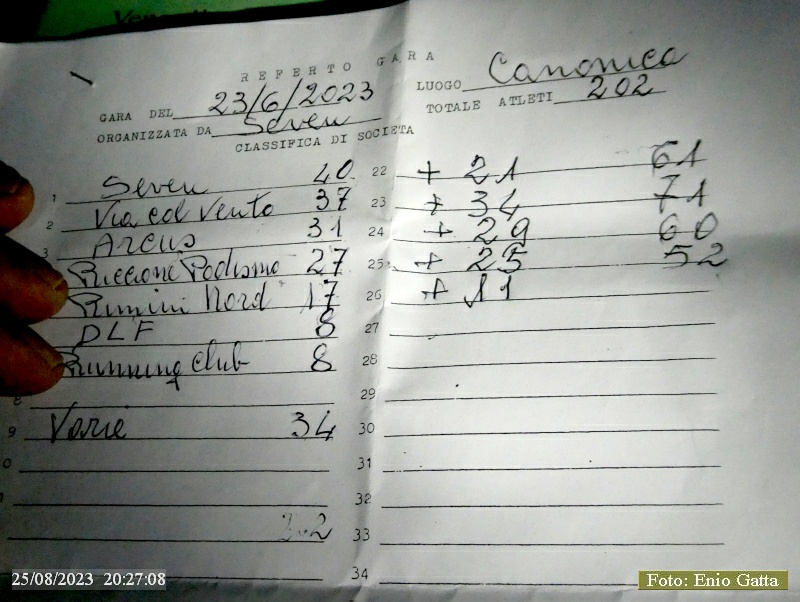 REFERTO GARA
GARA DEL 23/6/2023 LUOGO Canonica
ORGANIZZATA DA Seven TOTALE ATLETI 202
CLASSIFICA DI SOCIETA
1 Seven 40 22 + 21 61
2 Via col Vento 37 23 + 34 71
3 Arcus 31 24 + 29 60
Riccione Podismo 27 25 + 25 52
Rimini Nord 17 26 + 11
DLF 8 27
Running club 8 28
8 29
9 Varie 34 30
0 31
32
33
34
25/08/2023 20:27:08
Foto: Enio Gatta